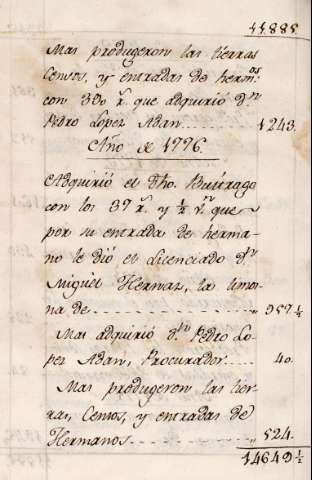 11885
Mas produgeron las tierras
Censos, y entradas de herm.os
con 330 r.s que adquirió d.n
Pedro Lopez Adan........ 1243.
Año de 1776.
Adquirió el dho. Buitrago
con los 37 r.s y ½ r.n que
por su entrada de herma-
no le dió el Licenciado d.n
Miguel Hernaz, la limos
na de................ 957½
Mas adquirió d.n Pedro Lo-
pez Adan, Procurador..... 40.
Mas produgeron las tier-
ras, Censos, y entradas de
Hermanos............. 524.
14649½